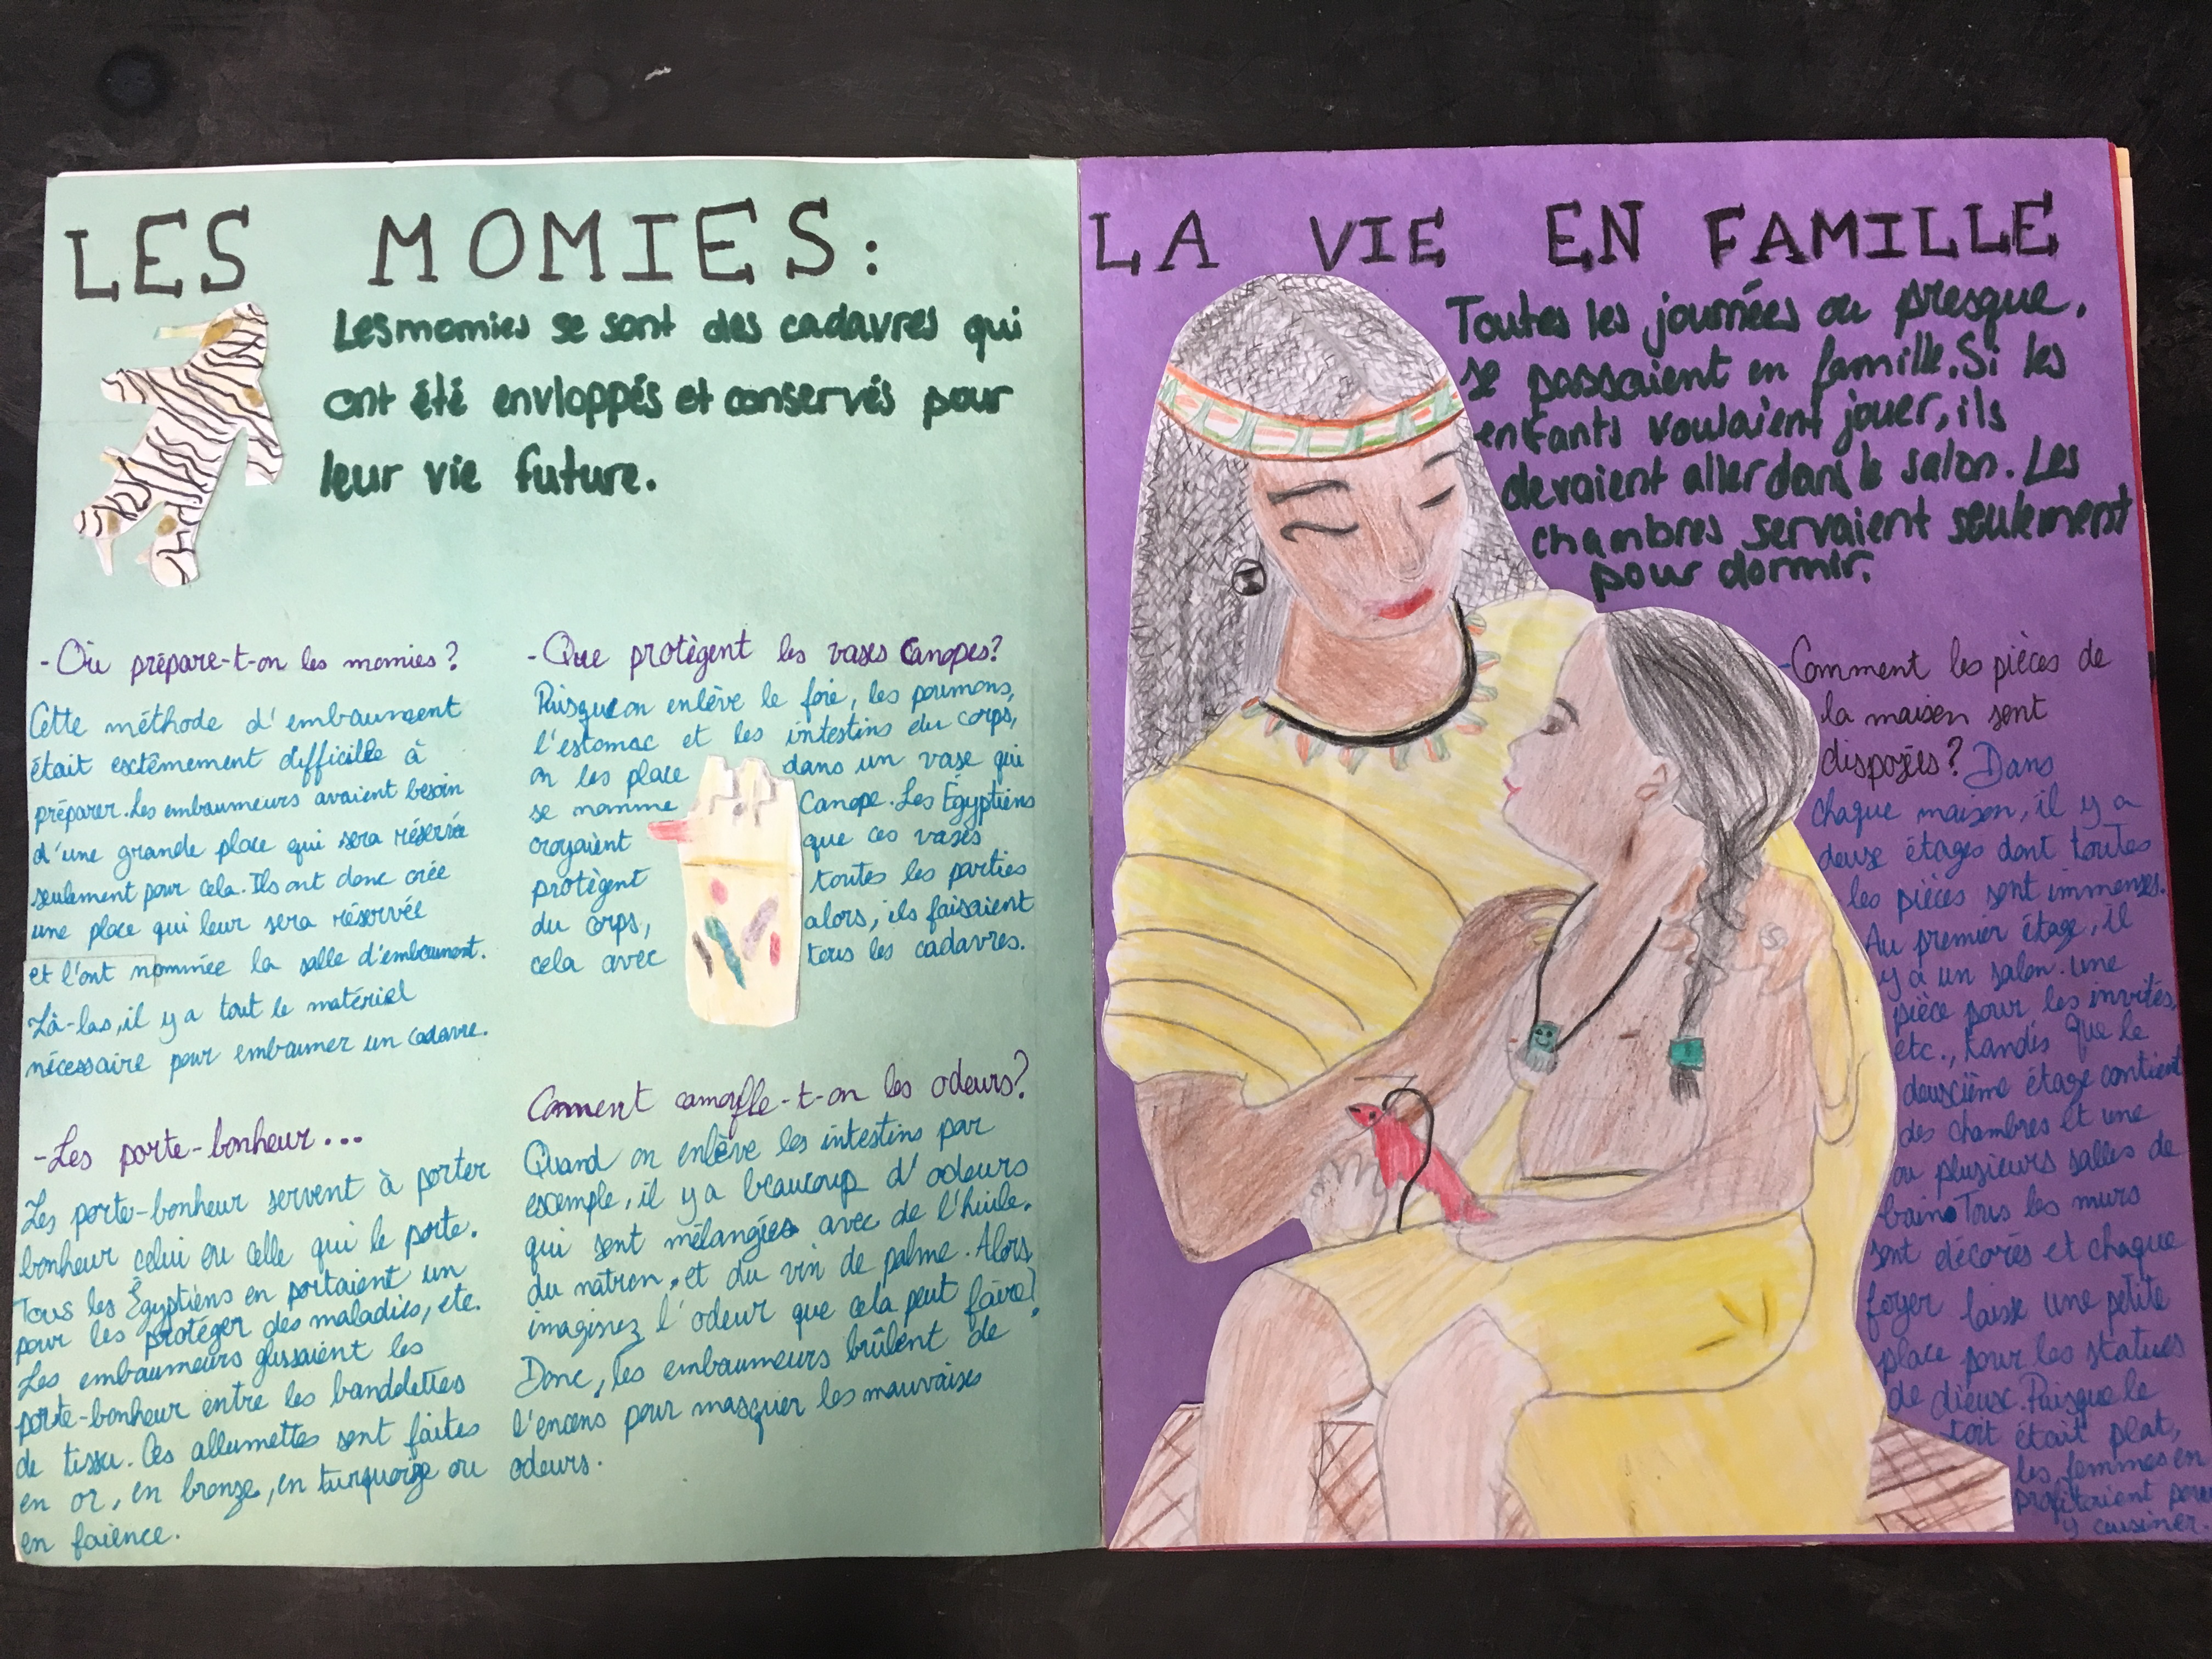 LES MOMIES:
Les momies se sont des cadavres qui
ont été envloppés et conservés pour
leur vie future.
-Où prépare-t-on les momies?
Cette méthode d'embaument
était exctêmement difficille à
préparer. Les embaumeurs avaient besoin
d'une grande place qui sera réservée
seulement pour cela. Ils ont donc créé
une place qui leur sera réservée
et l'ont nommée la salle d'embaument.
Là-bas, il y a tout le matériel
nécessaire pour embaumer un cadavre.
-Les porte-bonheur...
Les porte-bonheur servent à porter
bonheur celui ou celle qui le porte.
Tous les Égyptiens en portaient un
pour les protéger des maladies, etc.
Les embaumeurs glissaient les
porte-bonheur entre les bandelettes
de tissu. Ces allumettes sont faites
en or, en bronze, en turquoize ou
en faience.
-Que protègent les vases Canopes?
Puisque on enlève le foie, les poumons,
l'estomac et les intestins du corps,
on les place dans un vase qui
se nomme Canope. Les Égyptiens
croyaient que ces vases
protègent toutes les parties
du corps, alors, ils faisaient
cela avec tous les cadavres.
Comment camoufle-t-on les odeurs?
Quand on enlève les intestins par
exemple, il y a beaucoup d'odeurs
qui sont mélangées avec de l'huile,
du natron, et du vin de palme. Alors
imaginez l'odeur que cela peut faire!
Donc, les embaumeurs brûlent de
l'encens pour masquer les mauvaises
odeurs.
LA VIE EN FAMILLE
Toutes les journées ou presque,
se passaient en famille. Si les
enfants voulaient jouer, ils
devaient aller dans le salon. Les
chambres servaient seulement
pour dormir.
-Comment les pièces de
la maison sont
disposées? Dans
chaque maison, il y a
deux étages dont toutes
les pièces sont immenses.
Au premier étage, il
y a un salon, une
pièce pour les invités,
etc., tandis que le
deuxième étage contient
des chambres et une
ou plusieurs salles de
bain. Tous les murs
sont décorés et chaque
foyer laisse une petite
place pour les statues
de dieux. Puisque le
toit était plat,
les femmes en
profitaient pour
y cuisiner.